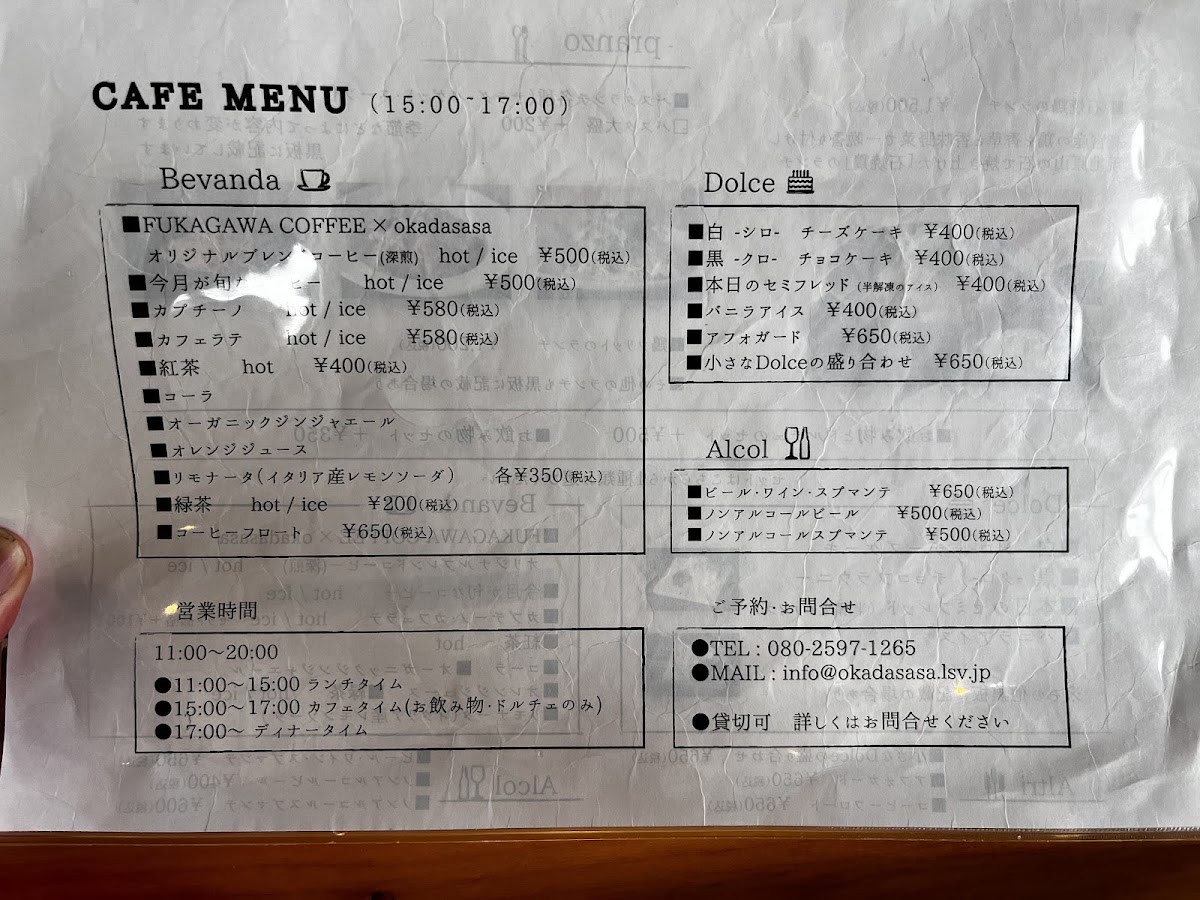 CAFE MENU (15:00~17:00)
Bevanda
■FUKAGAWA COFFEE × okadasasa
オリジナルブレンドコーヒー(深煎) hot / ice ¥500(税込)
■今月が旬 ヒー hot / ice ¥500(税込)
■カプチーノ hot / ice ¥580(税込)
■カフェラテ hot / ice ¥580(税込)
■紅茶 hot ¥400(税込)
■コーラ
■オーガニックジンジャエール
■オレンジジュース
■リモナータ(イタリア産レモンソーダ) 各¥350(税込)
■緑茶 hot / ice ¥200(税込)
■コーヒーフロート ¥650(税込)
Dolce
■白 -シロ- チーズケーキ ¥400(税込)
■黒 -クロ- チョコケーキ ¥400(税込)
■本日のセミフレッド (半解凍のアイス) ¥400(税込)
■バニラアイス ¥400(税込)
■アフォガード ¥650(税込)
■小さなDolceの盛り合わせ ¥650(税込)
Alcol
■ビール・ワイン・スプマンテ ¥650(税込)
■ノンアルコールビール ¥500(税込)
■ノンアルコールスプマンテ ¥500(税込)
営業時間
11:00〜20:00
●11:00〜15:00 ランチタイム
●15:00〜17:00 カフェタイム(お飲み物・ドルチェのみ)
●17:00〜 ディナータイム
ご予約・お問合せ
●TEL : 080-2597-1265
●MAIL : info@okadasasa.lsv.jp
●貸切可 詳しくはお問合せください